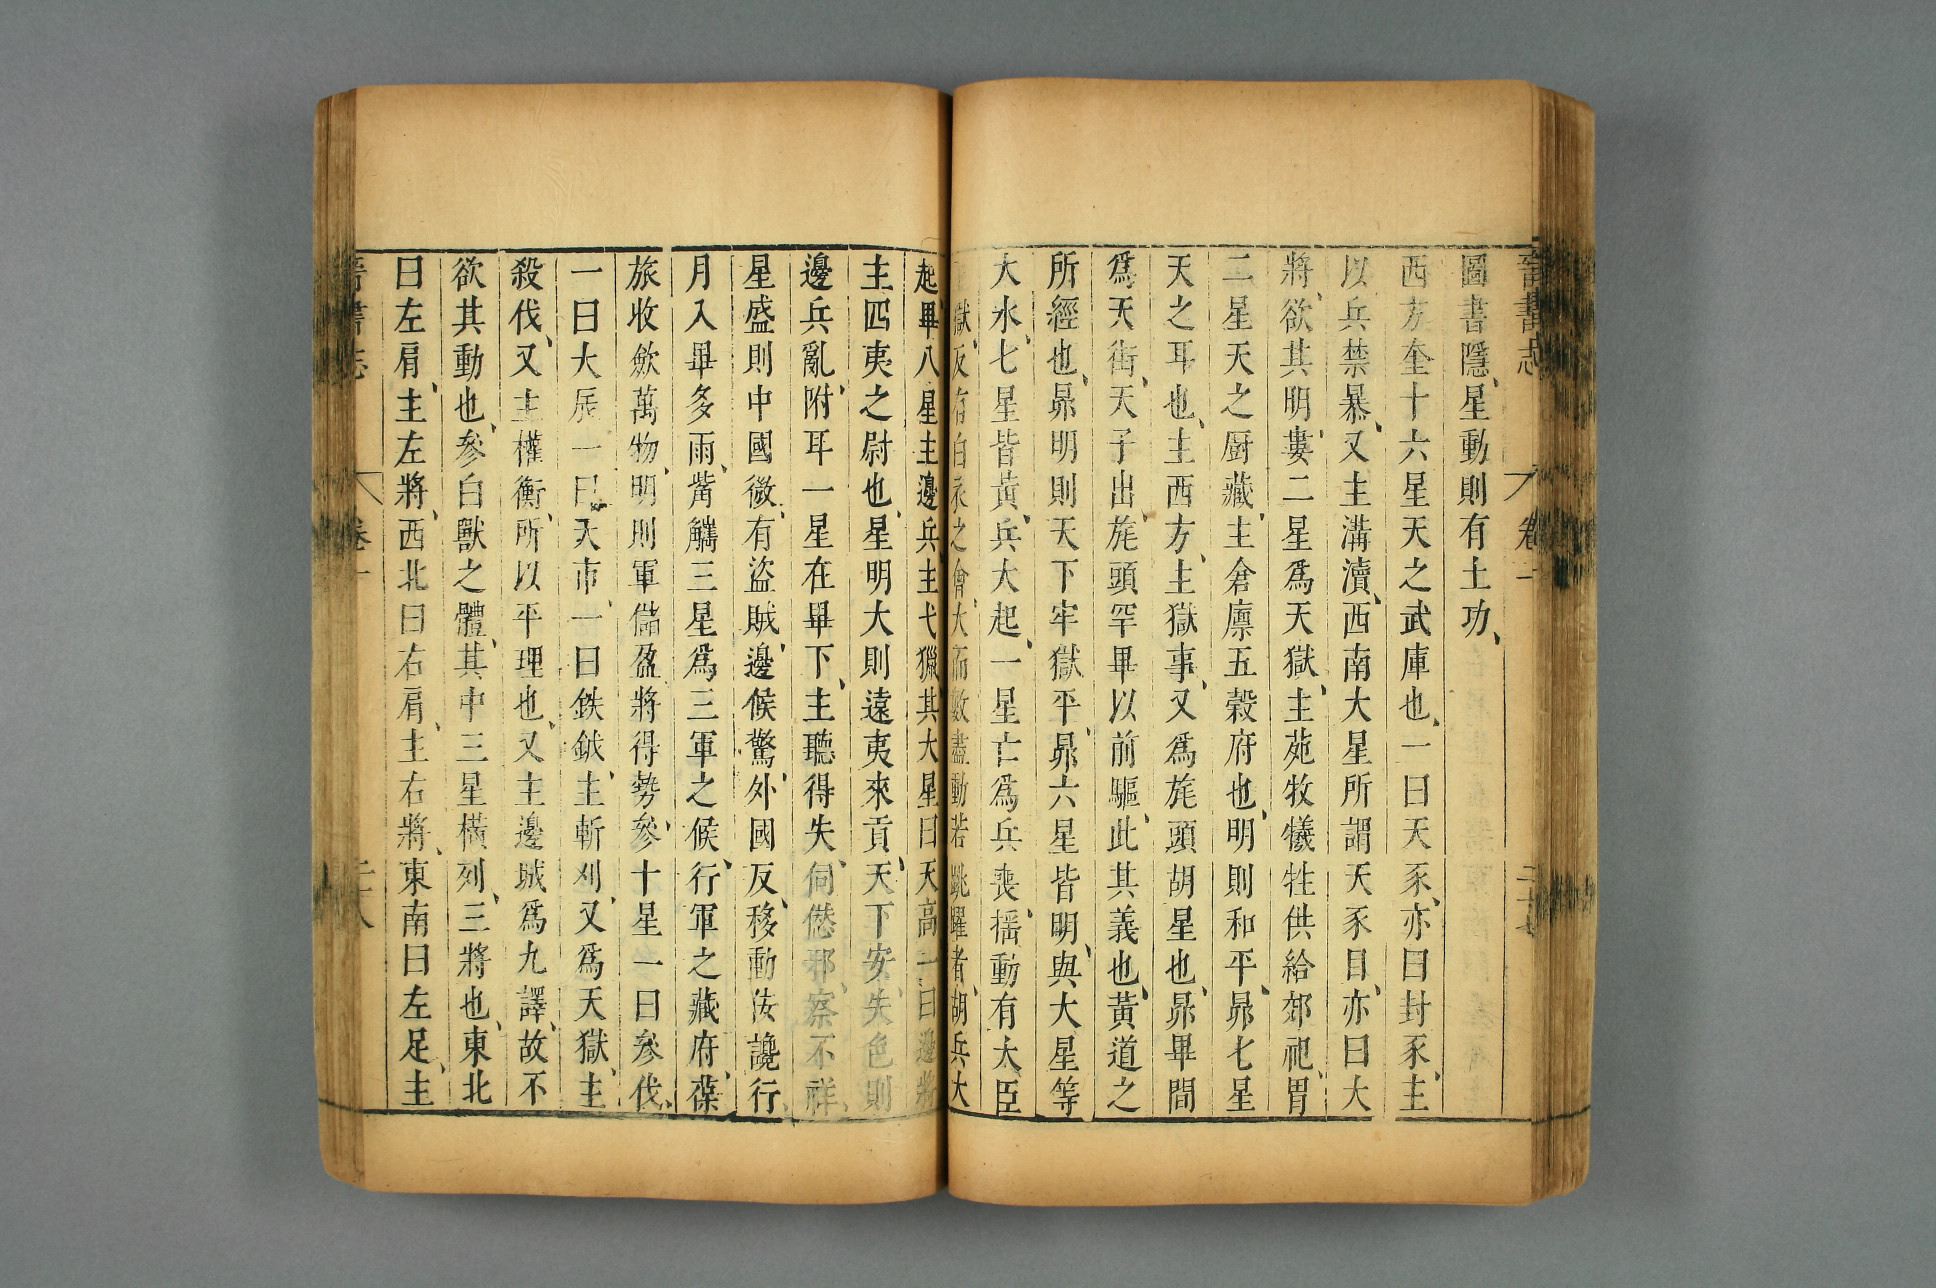 晉書志
卷一
二十七
圖書隱、星動則有土功、
西方奎十六星天之武庫也、一曰天豕、亦曰封豕、主
以兵禁暴、又主溝瀆、西南大星所謂天豕目、亦曰大
將、欲其明、婁二星爲天獄、主苑牧犧牲供給郊祀、胃
二星天之厨藏、主倉廪五穀府也、明則和平、昴七星
天之耳也、主西方、主獄事、又爲旄頭胡星也、昴畢間
爲天街、天子出、旄頭罕畢以前驅、此其義也、黃道之
所經也、昴明則天下牢獄平、昴六星皆明、與大星等
大水、七星皆黃、兵大起、一星亡爲兵喪、搖動有大臣
獄、反有白衣之會、大而數盡動若跳躍者、胡兵大
起、畢八星主邊兵、主弋獵、其大星曰天高、一曰邊將
主四夷之尉也、星明大則遠夷來貢、天下安、失色則
邊兵亂、附耳一星在畢下、主聽得失、伺愆邪、察不祥、
星盛則中國微、有盜賊、邊候驚、外國反、移動佞讒行、
月入畢多雨、觜觿三星爲三軍之候、行軍之藏府、葆
旅收斂萬物、明則軍儲盈將得勢、參十星一曰參伐、
一曰大辰一曰天市、一曰鉄鉞、主斬刈、又爲天獄、主
殺伐、又主權衡、所以平理也、又主邊城爲九譯、故不
欲其動也、參白獸之體、其中三星橫列、三將也、東北
曰左肩、主左將、西北曰右肩、主右將、東南曰左足、主
晉書志
卷一
二十八